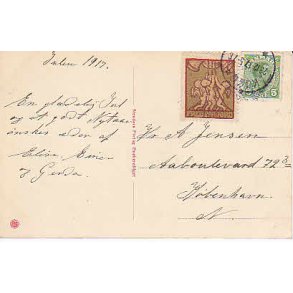 Julen 1917.
En glædelig Jul
og et godt Nytaar
ønskes eder af
Elise Ejner
og Gerda.
Hr A Jensen
Aaboulevard 72 3
København
N.
5